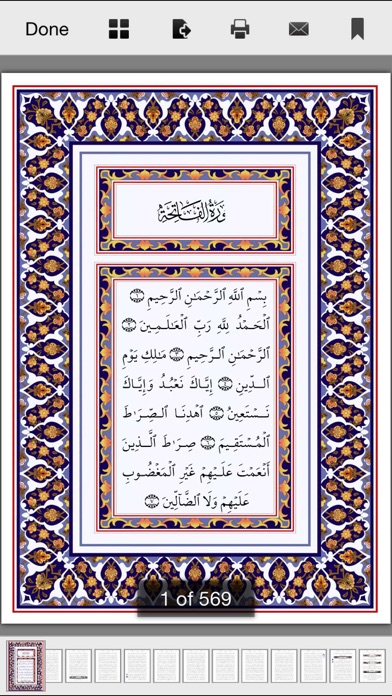 Done
سُورَةُ الفَاتِحَةِ
بِسْمِ ٱللَّهِ ٱلرَّحْمَـٰنِ ٱلرَّحِيمِ ۝١
ٱلْحَمْدُ لِلَّهِ رَبِّ ٱلْعَـٰلَمِينَ ۝٢
ٱلرَّحْمَـٰنِ ٱلرَّحِيمِ ۝٣ مَـٰلِكِ يَوْمِ
ٱلدِّينِ ۝٤ إِيَّاكَ نَعْبُدُ وَإِيَّاكَ
نَسْتَعِينُ ۝٥ ٱهْدِنَا ٱلصِّرَٰطَ
ٱلْمُسْتَقِيمَ ۝٦ صِرَٰطَ ٱلَّذِينَ
أَنْعَمْتَ عَلَيْهِمْ غَيْرِ ٱلْمَغْضُوبِ
عَلَيْهِمْ وَلَا ٱلضَّآلِّينَ ۝٧
1 of 569